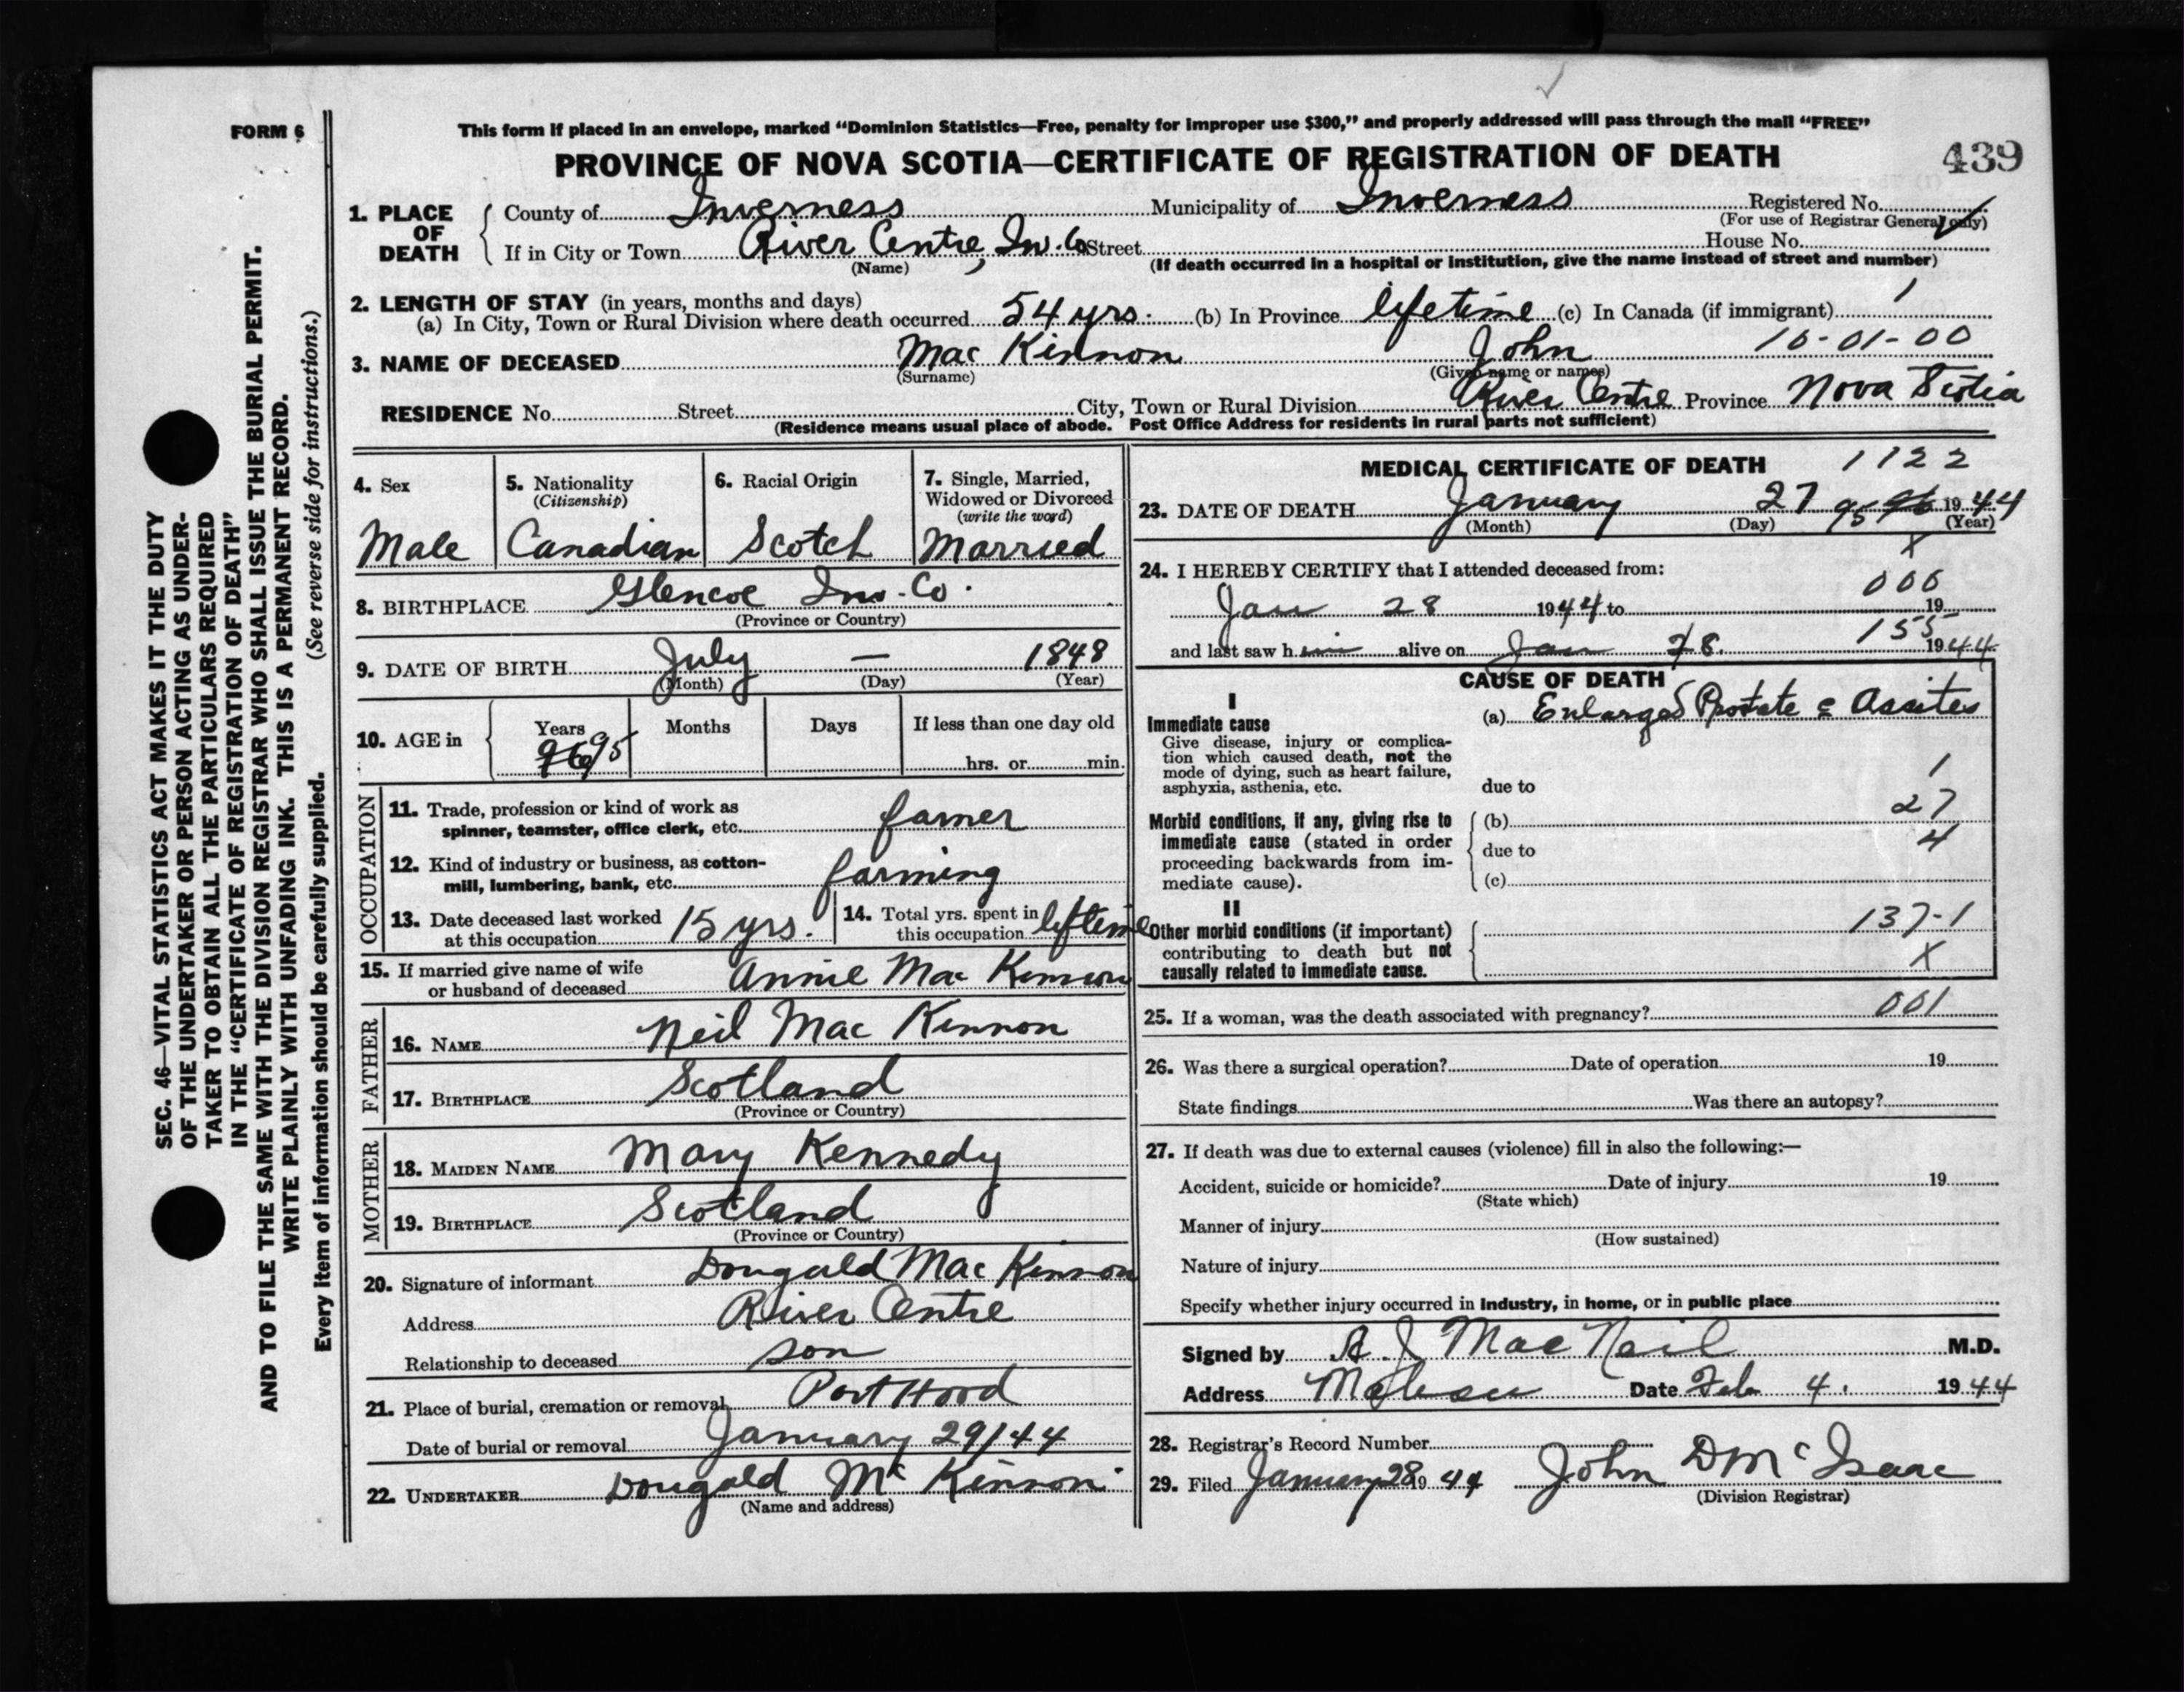 FORM 6
This form if placed in an envelope, marked “Dominion Statistics—Free, penalty for improper use $300,” and properly addressed will pass through the mail “FREE”
PROVINCE OF NOVA SCOTIA—CERTIFICATE OF REGISTRATION OF DEATH
439
SEC. 46—VITAL STATISTICS ACT MAKES IT THE DUTY
OF THE UNDERTAKER OR PERSON ACTING AS UNDER-
TAKER TO OBTAIN ALL THE PARTICULARS REQUIRED
IN THE “CERTIFICATE OF REGISTRATION OF DEATH”
AND TO FILE THE SAME WITH THE DIVISION REGISTRAR WHO SHALL ISSUE THE BURIAL PERMIT.
WRITE PLAINLY WITH UNFADING INK. THIS IS A PERMANENT RECORD.
Every item of information should be carefully supplied. (See reverse side for instructions.)
1. PLACE OF DEATH
County of Inverness Municipality of Inverness Registered No.
(For use of Registrar General only)
If in City or Town River Centre, Inv. Co Street House No.
(Name) (If death occurred in a hospital or institution, give the name instead of street and number)
2. LENGTH OF STAY (in years, months and days)
(a) In City, Town or Rural Division where death occurred 54 yrs. (b) In Province lifetime (c) In Canada (if immigrant)
1
3. NAME OF DECEASED Mac Kinnon John 10-01-00
(Surname) (Given name or names)
RESIDENCE No. Street City, Town or Rural Division River Centre Province Nova Scotia
(Residence means usual place of abode. Post Office Address for residents in rural parts not sufficient)
4. Sex
Male
5. Nationality
(Citizenship)
Canadian
6. Racial Origin
Scotch
7. Single, Married,
Widowed or Divorced
(write the word)
Married
8. BIRTHPLACE Glencoe Inv. Co.
(Province or Country)
9. DATE OF BIRTH July — 1848
(Month) (Day) (Year)
10. AGE in
Years Months Days If less than one day old
96 95 hrs. or min.
OCCUPATION
11. Trade, profession or kind of work as
spinner, teamster, office clerk, etc. famer
12. Kind of industry or business, as cotton-
mill, lumbering, bank, etc. farming
13. Date deceased last worked
at this occupation 15 yrs.
14. Total yrs. spent in
this occupation lifteime
15. If married give name of wife
or husband of deceased Annie Mac Kinnon
FATHER
16. NAME Neil Mac Kinnon
17. BIRTHPLACE Scotland
(Province or Country)
MOTHER
18. MAIDEN NAME Mary Kennedy
19. BIRTHPLACE Scotland
(Province or Country)
20. Signature of informant Dougald Mac Kinnon
Address River Centre
Relationship to deceased son
21. Place of burial, cremation or removal Port Hood
Date of burial or removal January 29/44
22. UNDERTAKER Dougald Mc Kinnon
(Name and address)
MEDICAL CERTIFICATE OF DEATH 1122
23. DATE OF DEATH January 27 95 96 1944
(Month) (Day) (Year)
X
24. I HEREBY CERTIFY that I attended deceased from:
000
Jan 28 1944 to 19
155
and last saw him alive on Jan 28. 1944
CAUSE OF DEATH
I
Immediate cause
Give disease, injury or complica-
tion which caused death, not the
mode of dying, such as heart failure,
asphyxia, asthenia, etc.
(a) Enlarged Prostate c Assites
due to
1
Morbid conditions, if any, giving rise to
immediate cause (stated in order
proceeding backwards from im-
mediate cause).
(b) 27
due to 4
(c)
II
Other morbid conditions (if important)
contributing to death but not
causally related to immediate cause.
137-1
X
25. If a woman, was the death associated with pregnancy? 001
26. Was there a surgical operation? Date of operation 19
State findings Was there an autopsy?
27. If death was due to external causes (violence) fill in also the following:—
Accident, suicide or homicide? Date of injury 19
(State which)
Manner of injury
(How sustained)
Nature of injury
Specify whether injury occurred in industry, in home, or in public place
Signed by A. J MacNeil M.D.
Address Date Feb 4. 1944
28. Registrar's Record Number
29. Filed January 28 19 44 John D McIsaac
(Division Registrar)